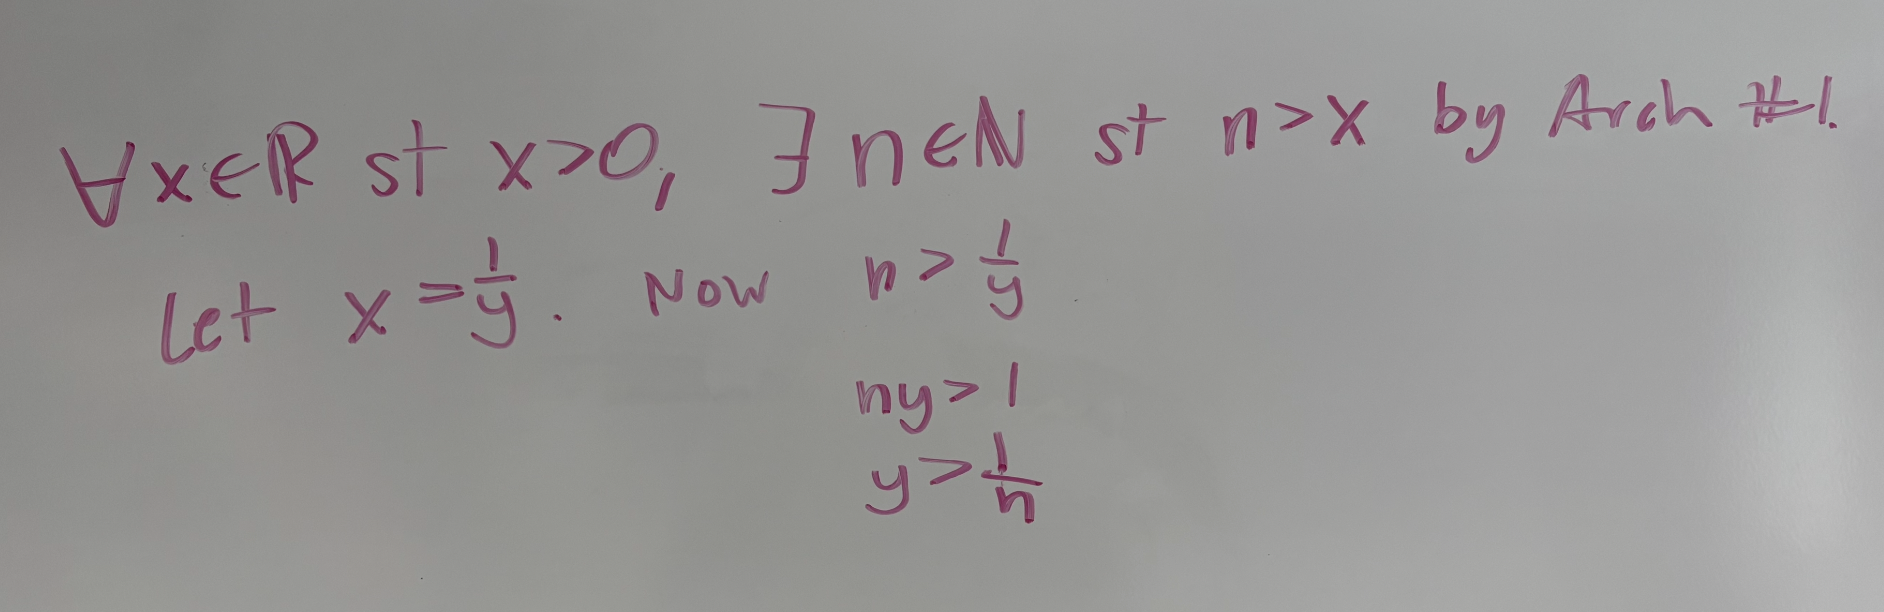 ∀x∈ℝ st x>0, ∃ n∈ℕ st n>x by Arch #1.
Let x = 1/y. Now n > 1/y
ny > 1
y > 1/n